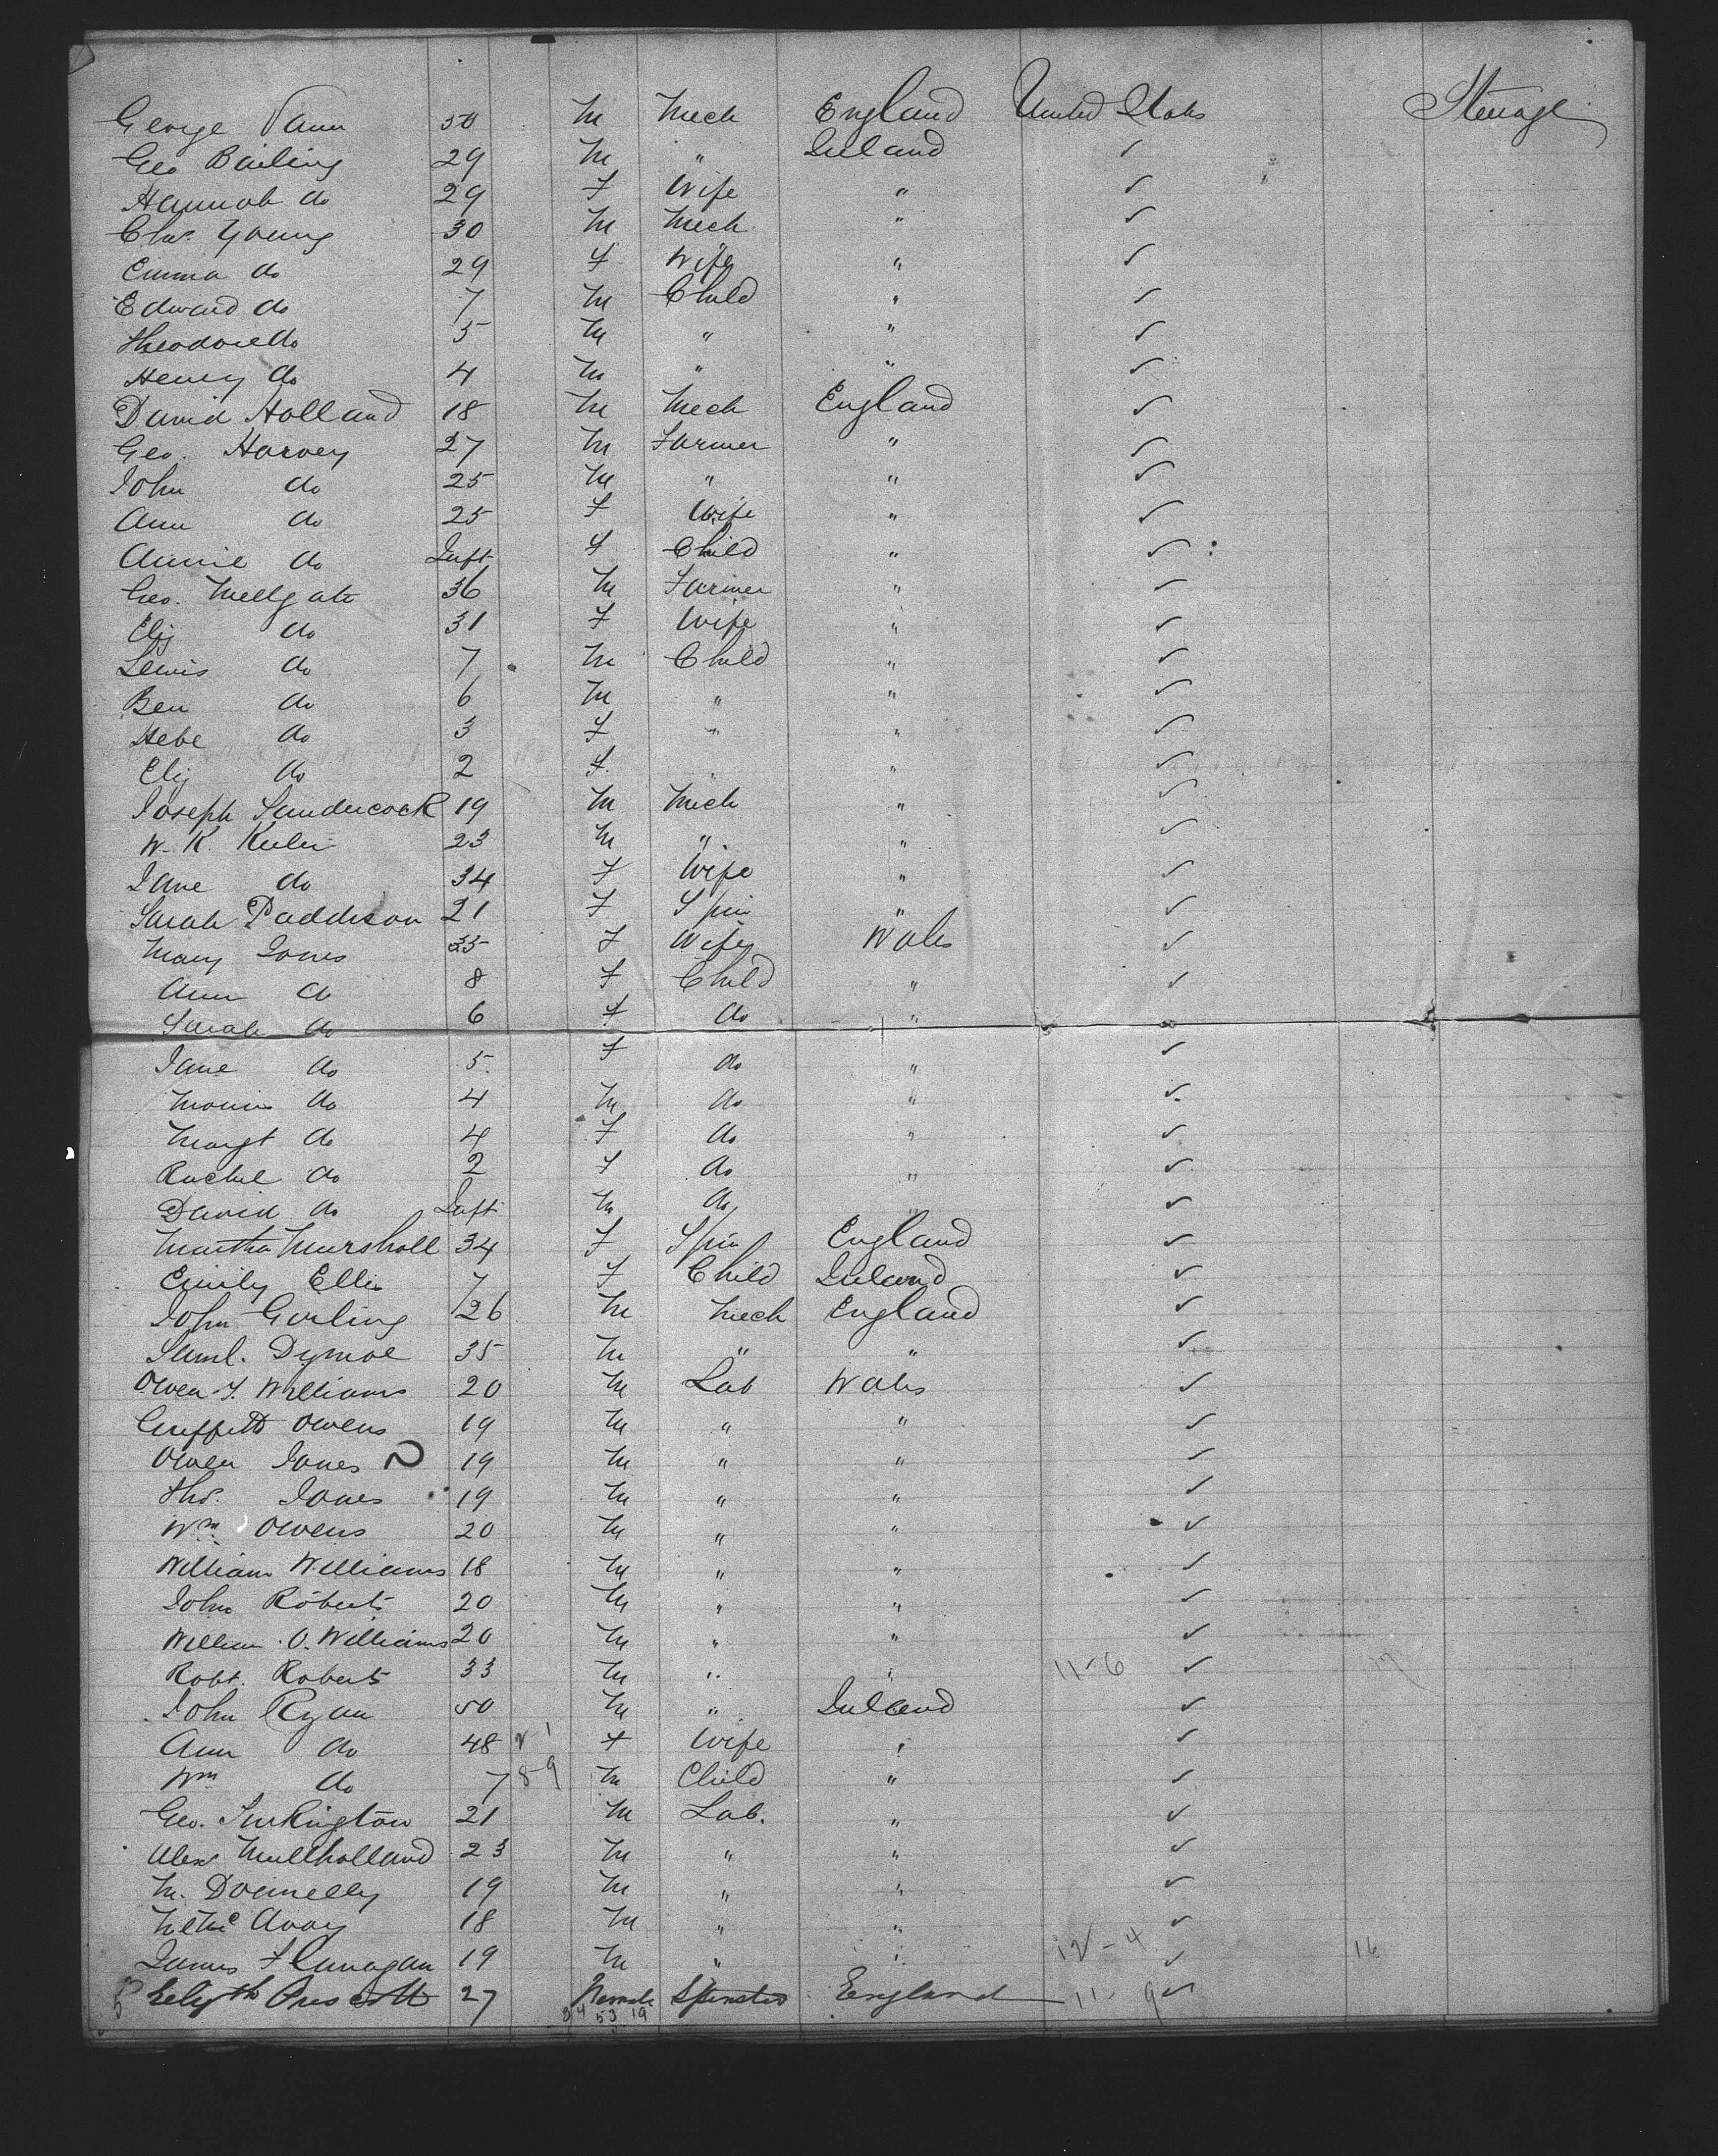 George Vann 50 M Mech England United States Steerage
Geo Bailing 29 M " Ireland ✓
Hannah do 29 F Wife " ✓
Chas. Young 30 M Mech " ✓
Emma do 29 F Wife " ✓
Edward do 7 M Child " ✓
Theodore do 5 M " " ✓
Henry do 4 M " " ✓
David Holland 18 M Mech England ✓
Geo. Harvey 27 M Farmer " ✓
John do 25 M " " ✓
Ann do 25 F Wife " ✓
Annie do Inft F Child " ✓
Geo. Mellgate 36 M Farmer " ✓
Eliz do 31 F Wife " ✓
Lewis do 7 M Child " ✓
Ben do 6 M " " ✓
Hebe do 3 F " " ✓
Eliz do 2 F " ✓
Joseph Sandercock 19 M Mech " ✓
W. K. 23 M " " ✓
Jane do 34 F Wife " ✓
Sarah Paddison 21 F Spin " ✓
Mary Jones 35 F Wife Wales ✓
Ann do 8 F Child " ✓
Sarah do 6 F do " ✓
Jane do 5 F do " ✓
Morris do 4 M do " ✓
Margt do 4 F do " ✓
Rachel do 2 F do " ✓
David do Inft M do " ✓
Martha Marshall 34 F Spin England ✓
Emily Ellis 7 F Child Ireland ✓
John Gorling 26 M Mech England ✓
Saml. Dymoe 35 M " " ✓
Owen J. Williams 20 M Lab Wales ✓
Griffith Owens 19 M " " ✓
Owen Jones 2 19 M " " ✓
Thos. Jones 19 M " " ✓
Wm. Owens 20 M " " ✓
William Williams 18 M " " ✓
John Roberts 20 M " " ✓
William O. Williams 20 M " " ✓
Robt. Roberts 33 M " " 11-6 ✓ 17
John Ryan 50 M " Ireland ✓
Ann do 48 2-1 F Wife " ✓
Wm do 7 8-9 M Child " ✓
Geo. Turkington 21 M Lab. " ✓
Alex Mullholland 23 M " " ✓
M. Donnelly 19 M " " ✓
Avoy 18 M " " ✓
James Flanagan 19 M " " 12-4 ✓ 16
53 Elizth Prescott 27 Female Spinster England 11-9 ✓
34 53 19